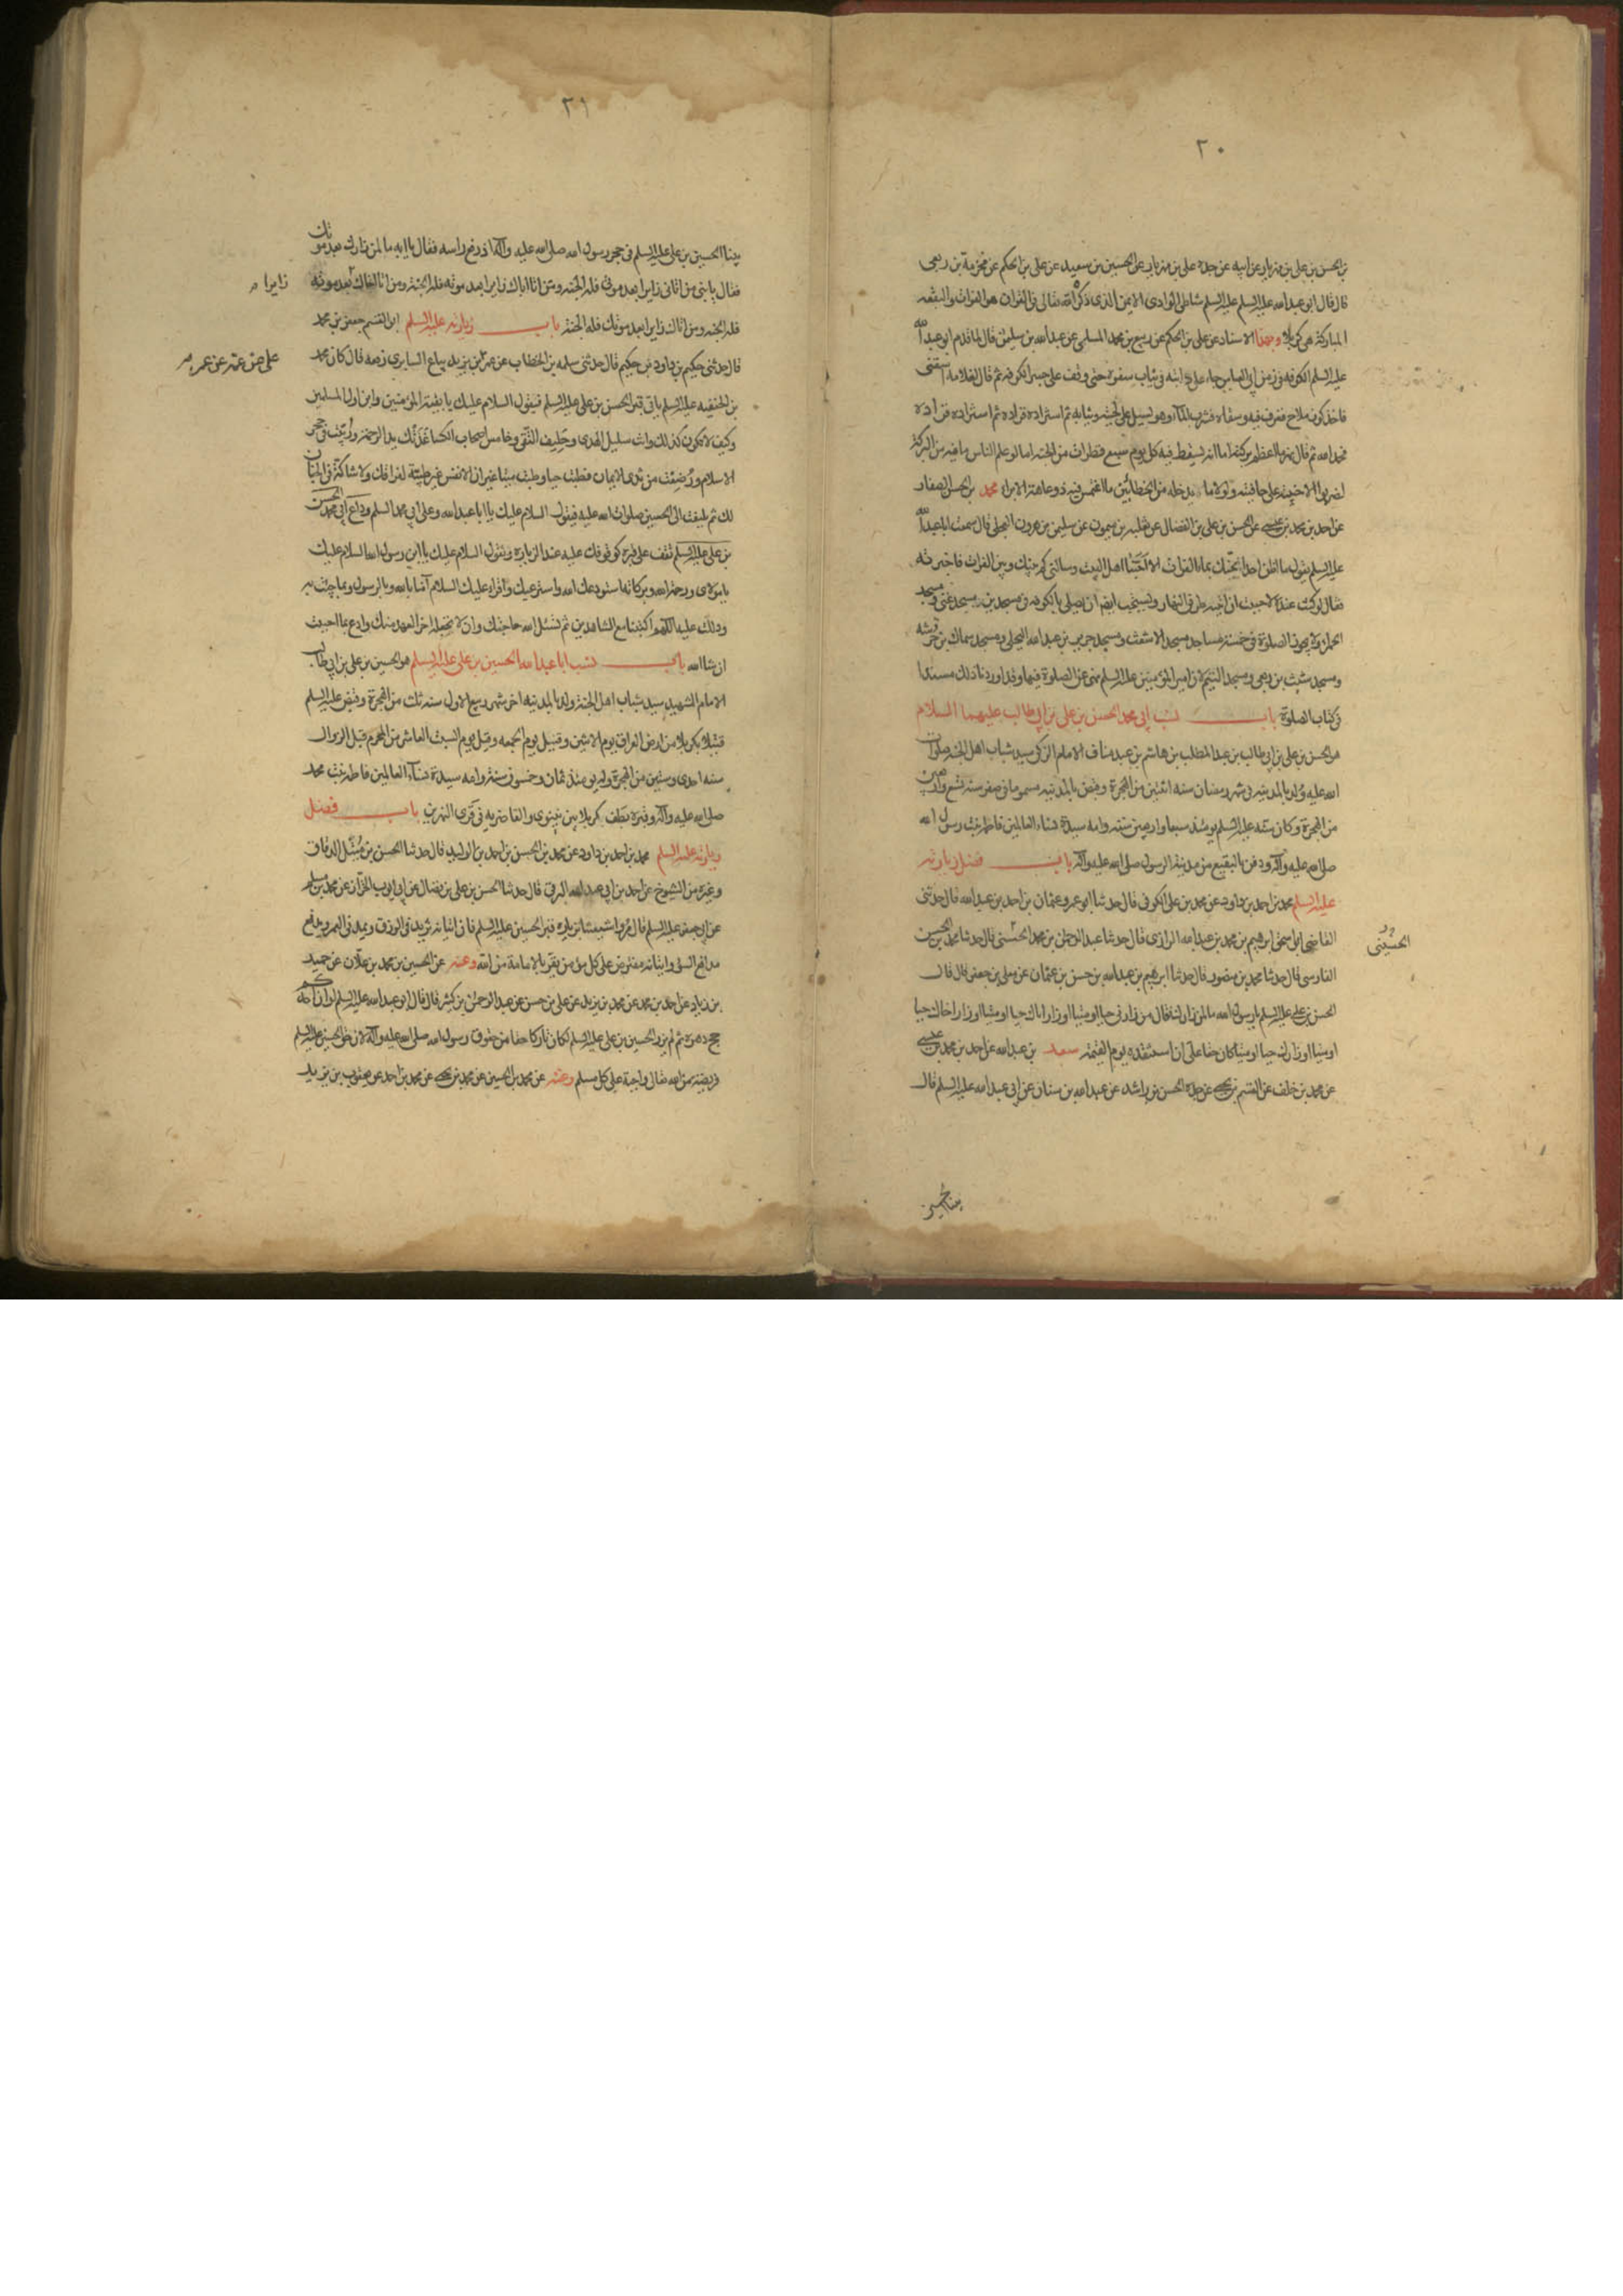 ٢٠
بن الحسن بن علي بن مهزيار عن ابيه عن جده علي بن مهزيار عن الحسين بن سعيد عن علي بن الحكم عن مخرمة بن ربعى
قال قال ابو عبد الله عليه السلم شاطئ الوادى الايمن الذى ذكره الله تعالى فى القران هو الفرات والبقعه
المباركة هى كربلا وبهذا الاسناد عن على بن الحكم عن ربيع بن محمد المسلمى عن عبد الله بن سليمن قال لما قدم ابو عبد الله
عليه السلم الكوفه فى زمن ابى العباس جاء على دابته فى ثياب سفره حتى وقف على جسر الكوفه ثم قال لغلامه اسقنى
فاخذ كوز ملاح فغرف فيه وسقاه فشرب الماء وهو يسيل على لحيته وثيابه ثم استزاده فزاده ثم استزاده فزاده
فحمد الله ثم قال نهر ما اعظم بركته اما انه يسقط فيه كل يوم سبع قطرات من الجنه اما لو علم الناس ما فيه من البركة
لضربوا الاخبية على حافتيه ولولا ما يدخله من الخطائين ما اغتمس فيه ذو عاهة الا برا محمد بن الحسن الصفار
عن احمد بن محمد بن عيسى عن الحسن بن على بن الفضال عن ثعلبه بن ميمون عن سليمن بن هرون العجلى قال سمعت ابا عبد الله
عليه السلم يقول ما اظن احدا يحنك بماء الفرات الا احبنا اهل البيت وسالنى كم بينك وبين الفرات فاخبرته
فقال لو كنت عنده لاحببت ان اتيه طرفى النهار ويستحب ايضا ان يصلى بالكوفه فى مسجد بنى مسجد غنى ومسجد
الحمراء ولا يجوز الصلوة فى خمسة مساجد مسجد الاشعث ومسجد جرير بن عبد الله البجلى ومسجد سماك بن خرشه
ومسجد شبث بن ربعى ومسجد التيم لان امير المؤمنين عليه السلم نهى عن الصلوة فيها وقد اوردنا ذلك مسندا
فى كتاب الصلوة باب نسب ابى محمد الحسن بن على بن ابى طالب عليهما السلام
هو الحسن بن على بن ابى طالب بن عبد المطلب بن هاشم بن عبد مناف الامام الزكى سيد شباب اهل الجنه صلوات
الله عليه ولد بالمدينه فى شهر رمضان سنه اثنتين من الهجرة وقبض بالمدينه مسموما فى صفر سنه تسع واربعين
من الهجرة وكان سنه عليه السلم يومئذ سبعا واربعين سنه وامه سيدة نساء العالمين فاطمه بنت رسول الله
صلى الله عليه واله ودفن بالبقيع من مدينة الرسول صلى الله عليه واله باب فضل زيارته
عليه السلم محمد بن احمد بن داود عن محمد بن على الكوفى قال حدثنا ابو عمرو عثمان بن احمد بن عبد الله قال حدثنى
القاضى ابو اسحق ابرهيم بن محمد بن عبد الله الرازى قال حدثنا عبد الرحمن بن محمد الحسنى قال حدثنا محمد بن الحسين
الحسينى
الفارسى قال حدثنا محمد بن منصور قال حدثنا ابرهيم بن عبد الله بن حسن بن عثمان عن معلى بن جعفر قال قال
الحسن بن على عليه السلم يا رسول الله ما لمن زارك فقال من زارنى حيا او ميتا او زار اباك حيا او ميتا او زار اخاك حيا
او ميتا او زارك حيا او ميتا كان حقا على ان استنقذه يوم القيمة سعد بن عبد الله عن احمد بن محمد بن عيسى
عن محمد بن خلف عن القسم بن يحيى عن جده الحسن بن راشد عن عبد الله بن سنان عن ابى عبد الله عليه السلم قال
بينا الحسين
٢١
بينا الحسين بن على عليه السلم فى حجر رسول الله صلى الله عليه واله اذ رفع راسه فقال يا ابه ما لمن زارك بعد موتك
فقال يا بنى من اتانى زايرا بعد موتى فله الجنه ومن اتا اباك زايرا بعد موته فله الجنة ومن اتا اخاك بعد موته
زايرا
فله الجنه ومن اتاك زايرا بعد موتك فله الجنة باب زيارته عليه السلم ابو القسم جعفر بن محمد
قال حدثنى حكيم بن داود بن حكيم قال حدثنى سلمه بن الخطاب عن عمر بن يزيد بياع السابرى رفعه قال كان محمد
بن الحنفيه عليه السلم ياتى قبر الحسن بن على عليه السلم فيقول السلام عليك يا بقية المؤمنين وابن اول المسلمين
وكيف لا تكون كذلك وانت سليل الهدى وحليف التقى وخامس اصحاب الكسا غذتك يد الرحمة وربيت فى حجر
الاسلام ورضعت من ثدى الايمان فطبت حيا وطبت ميتا غير ان الانفس غير طيبة لفراقك ولا شاكة فى الجنان
لك ثم يلتفت الى الحسين صلوات الله عليه فيقول السلام عليك يا ابا عبد الله وعلى ابى محمد السلم وداع ابى محمد الحسن
بن على عليه السلم تقف على قبره كوقوفك عليه عند الزيارة وتقول السلام عليك يا ابن رسول الله السلام عليك
يا مولاى ورحمة الله وبركاته استودعك الله واسترعيك واقرء عليك السلام آمنا بالله وبالرسول وبما جئت به
ودللت عليه اللهم اكتبنا مع الشاهدين ثم تسئل الله حاجتك وان لا يجعله اخر العهد منك وادع بما احببت
ان شا الله باب نسب ابا عبد الله الحسين بن على عليه السلم هو الحسين بن على بن ابى طالب
الامام الشهيد سيد شباب اهل الجنة ولد بالمدينه اخر شهر ربيع الاول سنه ثلث من الهجرة وقبض عليه السلم
قتيلا بكربلا من ارض العراق يوم الاثنين وقيل يوم الجمعه وقيل يوم السبت العاشر من المحرم قبل الزوال
سنه احدى وستين من الهجرة وله يومئذ ثمان وخمسون سنة وامه سيدة نساء العالمين فاطمه بنت محمد
صلى الله عليه واله وقبره بطف كربلا بين نينوى والغاضريه فى قرى النهرين باب فضل
زيارته عليه السلم محمد بن احمد بن داود عن محمد بن الحسن بن احمد بن الوليد قال حدثنا الحسن بن متيل الدقاق
وغيره من الشيوخ عن احمد بن ابى عبد الله البرقى قال حدثنا الحسن بن على بن فضال عن ابى ايوب الخزاز عن محمد بن مسلم
عن ابى جعفر عليه السلم قال مروا شيعتنا بزيارة قبر الحسين عليه السلم فان اتيانه يزيد فى الرزق ويمد فى العمر ويدفع
مدافع السوء واتيانه مفترض على كل مؤمن يقر بالامامة من الله وعنه عن الحسين بن محمد بن علان عن حميد
بن زياد عن احمد بن محمد عن محمد بن يزيد عن على بن حسن عن عبد الرحمن بن كثير قال قال ابو عبد الله عليه السلم لو ان احدكم
حج دهره ثم لم يزر الحسين بن على عليه السلم لكان تاركا حقا من حقوق رسول الله صلى الله عليه واله لان حق الحسين عليه السلم
فريضة من الله تعالى واجبة على كل مسلم وعنه عن محمد بن الحسين عن محمد بن يحيى عن محمد بن احمد عن يعقوب بن يزيد